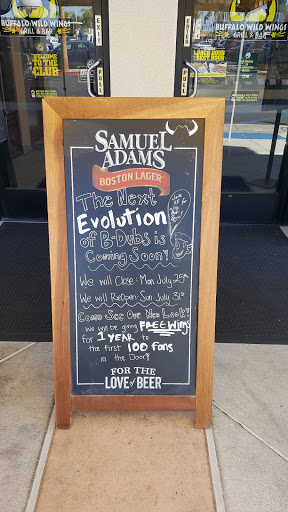 BUFFALO WILD WINGS
GRILL & BAR
BUFFALO WILD WINGS
GRILL & BAR
WELCOME
TO THE
CLUB
LUNCH HOUR
BEST HOUR
EXIT
SAMUEL
ADAMS
BOSTON LAGER
The Next
Evolution
of B-Dubs is
Coming Soon!
We will Close: Mon July 25th
We will ReOpen: Sun July 31st
Come See Our New Look!
We will be giving FREE Wings
for 1 YEAR to
the first 100 fans
in the Door!
FOR THE
LOVE of BEER